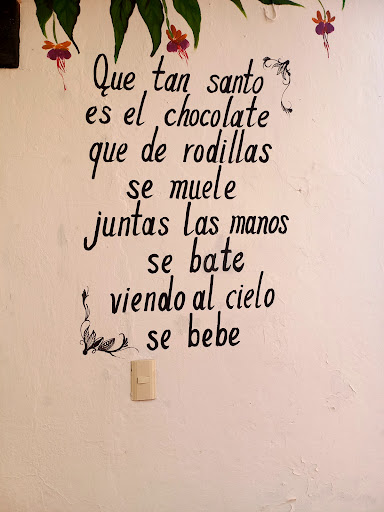 Que tan santo
es el chocolate
que de rodillas
se muele
juntas las manos
se bate
viendo al cielo
se bebe